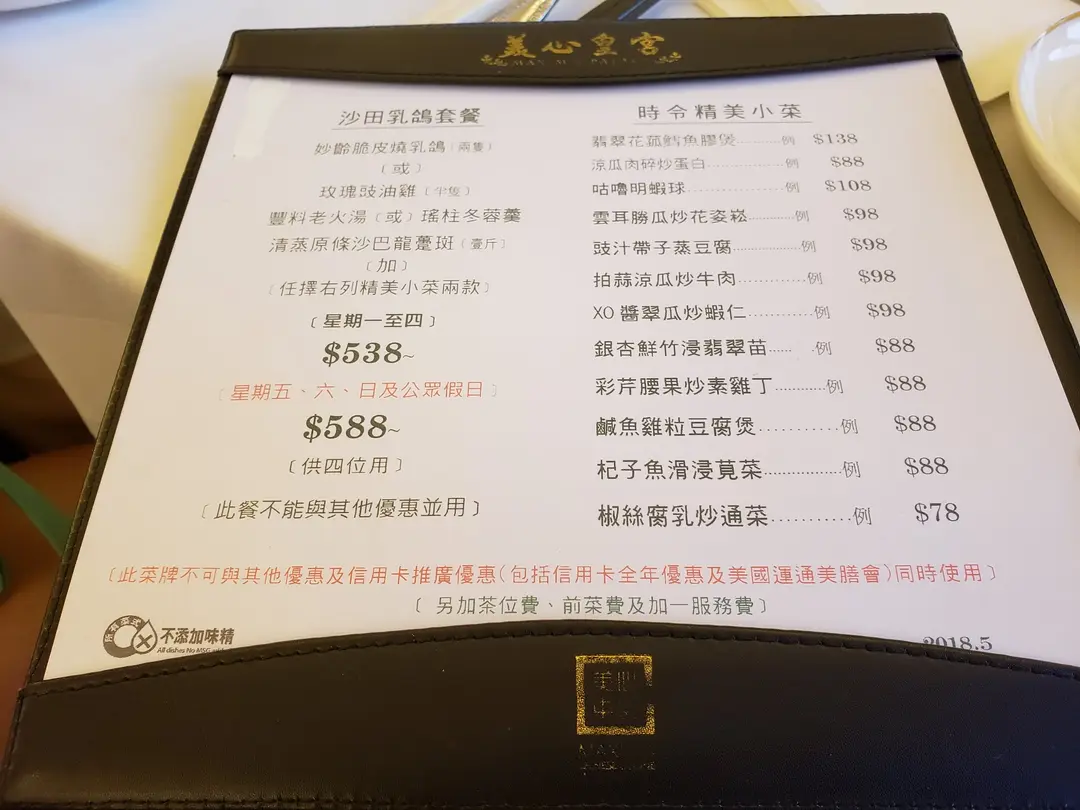 美心皇宮
沙田乳鴿套餐
妙齡脆皮燒乳鴿（兩隻）
（或）
玫瑰豉油雞（半隻）
豐料老火湯（或）瑤柱冬蓉羹
清蒸原條沙巴龍躉斑（壹斤）
（加）
〔任擇右列精美小菜兩款〕
〔星期一至四〕
$538~
〔星期五、六、日及公眾假日〕
$588~
〔供四位用〕
〔此餐不能與其他優惠並用〕
時令精美小菜
翡翠花菰鱈魚膠煲..........例 $138
涼瓜肉碎炒蛋白..........例 $88
咕嚕明蝦球..........例 $108
雲耳勝瓜炒花姿崧..........例 $98
豉汁帶子蒸豆腐..........例 $98
拍蒜涼瓜炒牛肉..........例 $98
XO 醬翠瓜炒蝦仁..........例 $98
銀杏鮮竹浸翡翠苗..........例 $88
彩芹腰果炒素雞丁..........例 $88
鹹魚雞粒豆腐煲..........例 $88
杞子魚滑浸莧菜..........例 $88
椒絲腐乳炒通菜..........例 $78
〔此菜牌不可與其他優惠及信用卡推廣優惠(包括信用卡全年優惠及美國運通美膳會)同時使用〕
〔另加茶位費、前菜費及加一服務費〕
不添加味精
All dishes No MSG
2018.5
美心